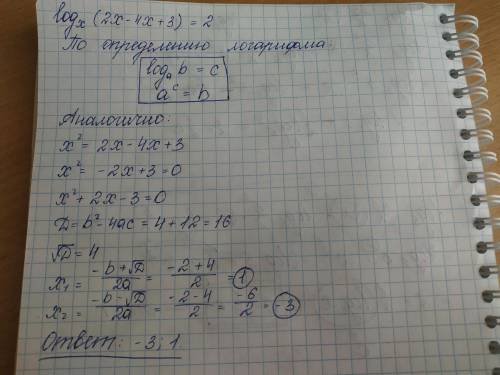 logₓ (2x-4x+3) = 2
По определению логарифма
logₐ b = c
aᶜ = b
Аналогично:
x² = 2x-4x+3
x² = -2x+3=0
x²+2x-3=0
D=b²-4ac=4+12=16
√D=4
x₁ = (-b+√D)/2a = (-2+4)/2 = 1
x₂ = (-b-√D)/2a = (-2-4)/2 = -6/2 = -3
Ответ: -3; 1